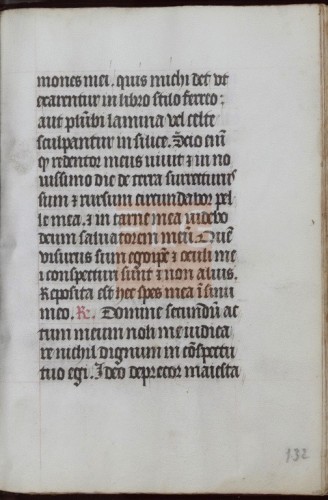 mones mei. quis michi det vt
exarentur in libro stilo ferreo:
aut plūbi lamina vel celte
sculpantur in silice. Scio eni̅
ꝙ redentor meus viuit ⁊ in no
uissimo die de terra surrecturus
sum ⁊ rursum circundabor pel
le mea. ⁊ in carne mea videbo
deum saluatorem meū. Quē
visurus sum ego ipse ⁊ oculi me
i conspecturi sunt ⁊ non alius.
Reposita est hec spes mea ī sinu
meo. R̷. Domine secundū ac
tum meum noli me iudica
re nichil dignum in cōspectu
tuo egi. Ideo deprecor maiesta
132